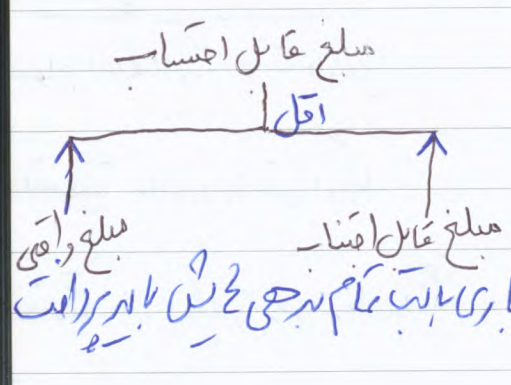 مبلغ قابل احتساب
اقل
مبلغ قابل اجتناب
مبلغ واقعی
بابت تمام بدهی هایش باید پرداخت